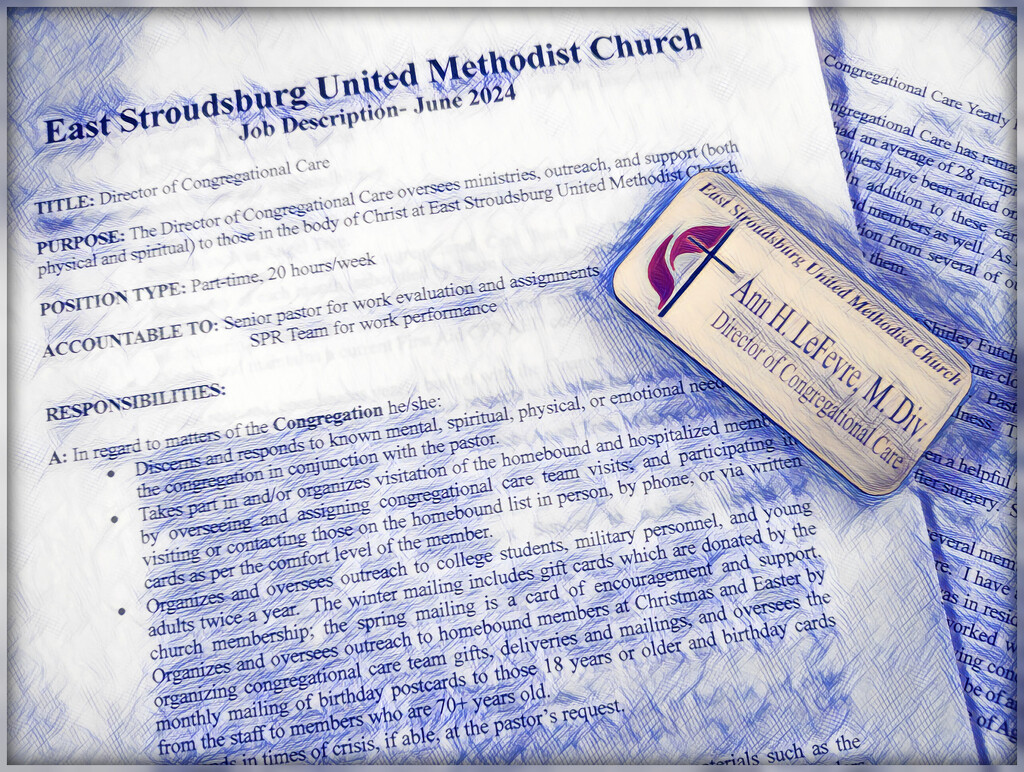 East Stroudsburg United Methodist Church
Job Description- June 2024
TITLE: Director of Congregational Care
PURPOSE: The Director of Congregational Care oversees ministries, outreach, and support (both
physical and spiritual) to those in the body of Christ at East Stroudsburg United Methodist Church.
POSITION TYPE: Part-time, 20 hours/week
ACCOUNTABLE TO: Senior pastor for work evaluation and assignments
SPR Team for work performance
RESPONSIBILITIES:
A: In regard to matters of the Congregation he/she:
• Discerns and responds to known mental, spiritual, physical, or emotional
the congregation in conjunction with the pastor.
• Takes part in and/or organizes visitation of the homebound and hospitalized
by overseeing and assigning congregational care team visits; and participating
visiting or contacting those on the homebound list in person, by phone, or via written
cards as per the comfort level of the member.
• Organizes and oversees outreach to college students, military personnel, and young
adults twice a year. The winter mailing includes gift cards which are donated by the
church membership; the spring mailing is a card of encouragement and support.
Organizes and oversees outreach to homebound members at Christmas and Easter by
organizing congregational care team gifts, deliveries and mailings, and oversees the
monthly mailing of birthday postcards to those 18 years or older and birthday cards
from the staff to members who are 70+ years old.
in times of crisis, if able, at the pastor's request.
such as the
East Stroudsburg United Methodist Church
Ann H. LeFevre, M. Div.
Director of Congregational Care
Congregational Care Yearly
Congregational Care has
had an average of 28
others have been added on
In addition to these
members as well. As
from several of
them.
Shirley
me
Past
illness.
a helpful
surgery.
several
I have
as in
worked
be of
of